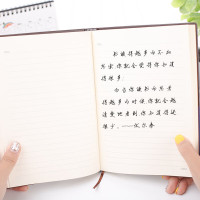 书读得越多而不加
思索你就会觉得你知道
得很多
而当你读书而思考
得越多的时候你就会越
清楚地看到你知道得还
很少。——伏尔泰